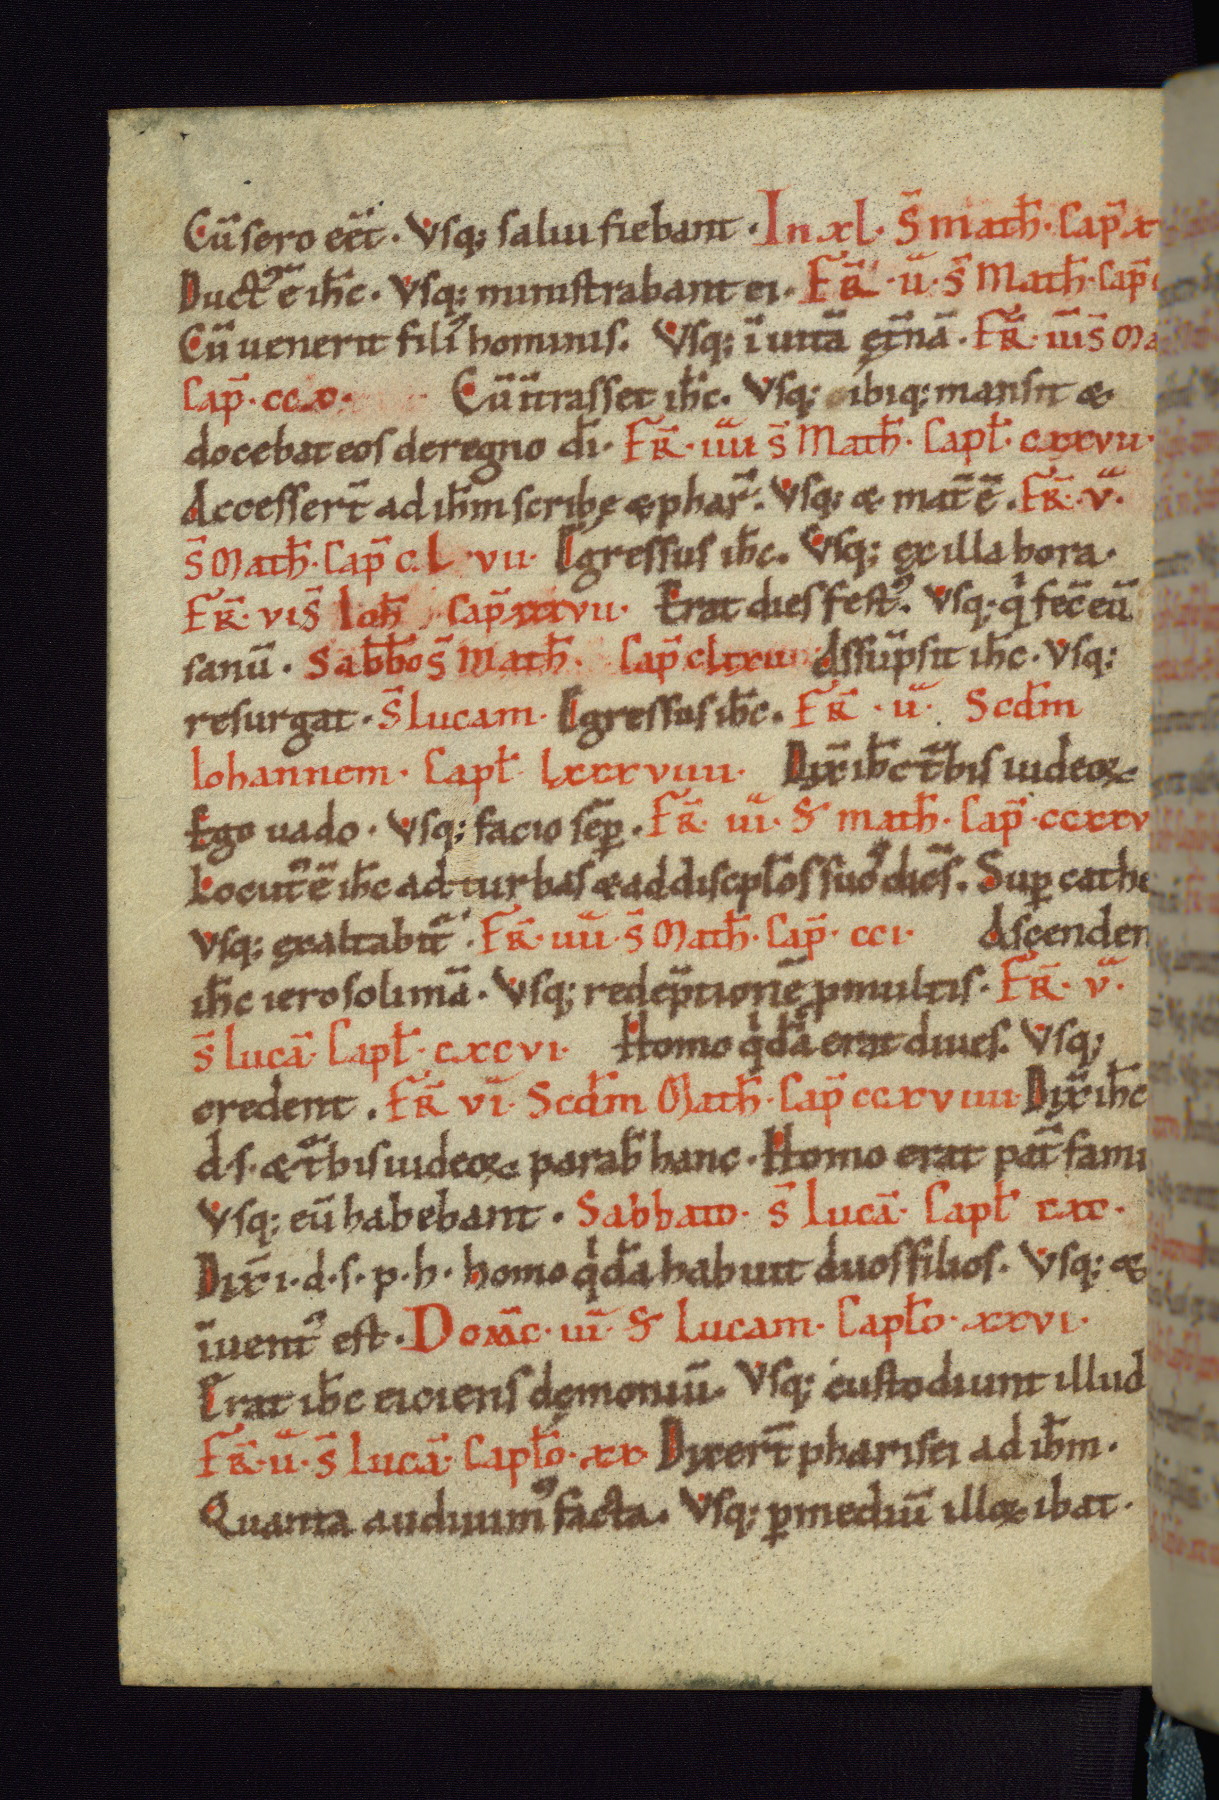 Cu̅ sero ee̅t · Vsq; salui fiebant · In xl · S̅ Math̅ · Cap̅ x
Duct᷒ e̅ ih̅c · Vsq; ministrabant ei · FR̅ · ii · S̅ Math̅ · Cap̅
Cu̅ uenerit fili᷒ hominis · Vsq; i̅ uita̅ et̅na̅ · FR̅ · iii S̅ Ma
Cap̅ · ccx · Cu̅ i̅trasset ih̅c · Vsq; ibiq; mansit &
docebat eos de regno di̅ · FR̅ · iiii S̅ Math̅ · Capl̅ · cxxvii ·
Accessert̅ ad ih̅m scribę & phar̅ · Vsq; & mat̅ e̅ · FR̅ · v ·
S̅ Math̅ · Cap̅ c L vii · Egressus ih̅c · Vsq; ex illa hora ·
FR̅ · vi S̅ Ioh̅ · Cap̅ xxxvii · Erat dies fest᷒ · Vsq; q̍ fec̅ eu̅
sanu̅ · Sabb̅o S̅ Math̅ · Cap̅ Assu̅psit ih̅c · Vsq;
resurgat · S̅ Lucam · Egressus ih̅c · FR̅ · ii · Scd̅m
Iohannem · Capl̅ · lxxxviiii · Dix̅ ih̅c t̅bis iudeoꝝ
Ego uado · Vsq; facio sep̅ · FR̅ · iii · S̅ Math̅ · Cap̅ · ccxxv
Locut᷒ e̅ ih̅c ad turbas & ad discipl̅os suos dice̅s · Sup̲ cathe
Vsq; exaltabit̅ · FR̅ · iiii · S̅ Math̅ · Cap̅ · cci · Ascenden
ih̅c ierosolima̅ · Vsq; rede̅ptione̅ ꝑ multis · FR̅ · v ·
S̅ Luca̅ · Capl̅ · cxcvi · Homo q̍da̅ erat diues · Vsq;
credent · FR̅ vi · Scd̅m Math̅ · Cap̅ ccxviiii · Dix̅ ih̅c
d · s · & t̅bis iudeoꝝ parab̅ hanc · Homo erat pat̅ fami
Vsq; eu̅ habebant · Sabbato · S̅ Luca̅ · Capl̅ cxc ·
Dix̅ i · d · s · p · h · homo q̍da̅ habuit duos filios · Vsq; &
i̅uent᷒ est · Dom̅c · iii · S̅ Lucam · Capl̅o · xxvi ·
Erat ih̅c eiciens dęmoniu̅ · Vsq; custodiunt illud
FR̅ · ii · S̅ Luca̅ · Capl̅o · xx · Dixert̅ pharisei ad ih̅m ·
Quanta audiuim᷒ facta · Vsq; ꝑ mediu̅ illoꝝ ibat ·